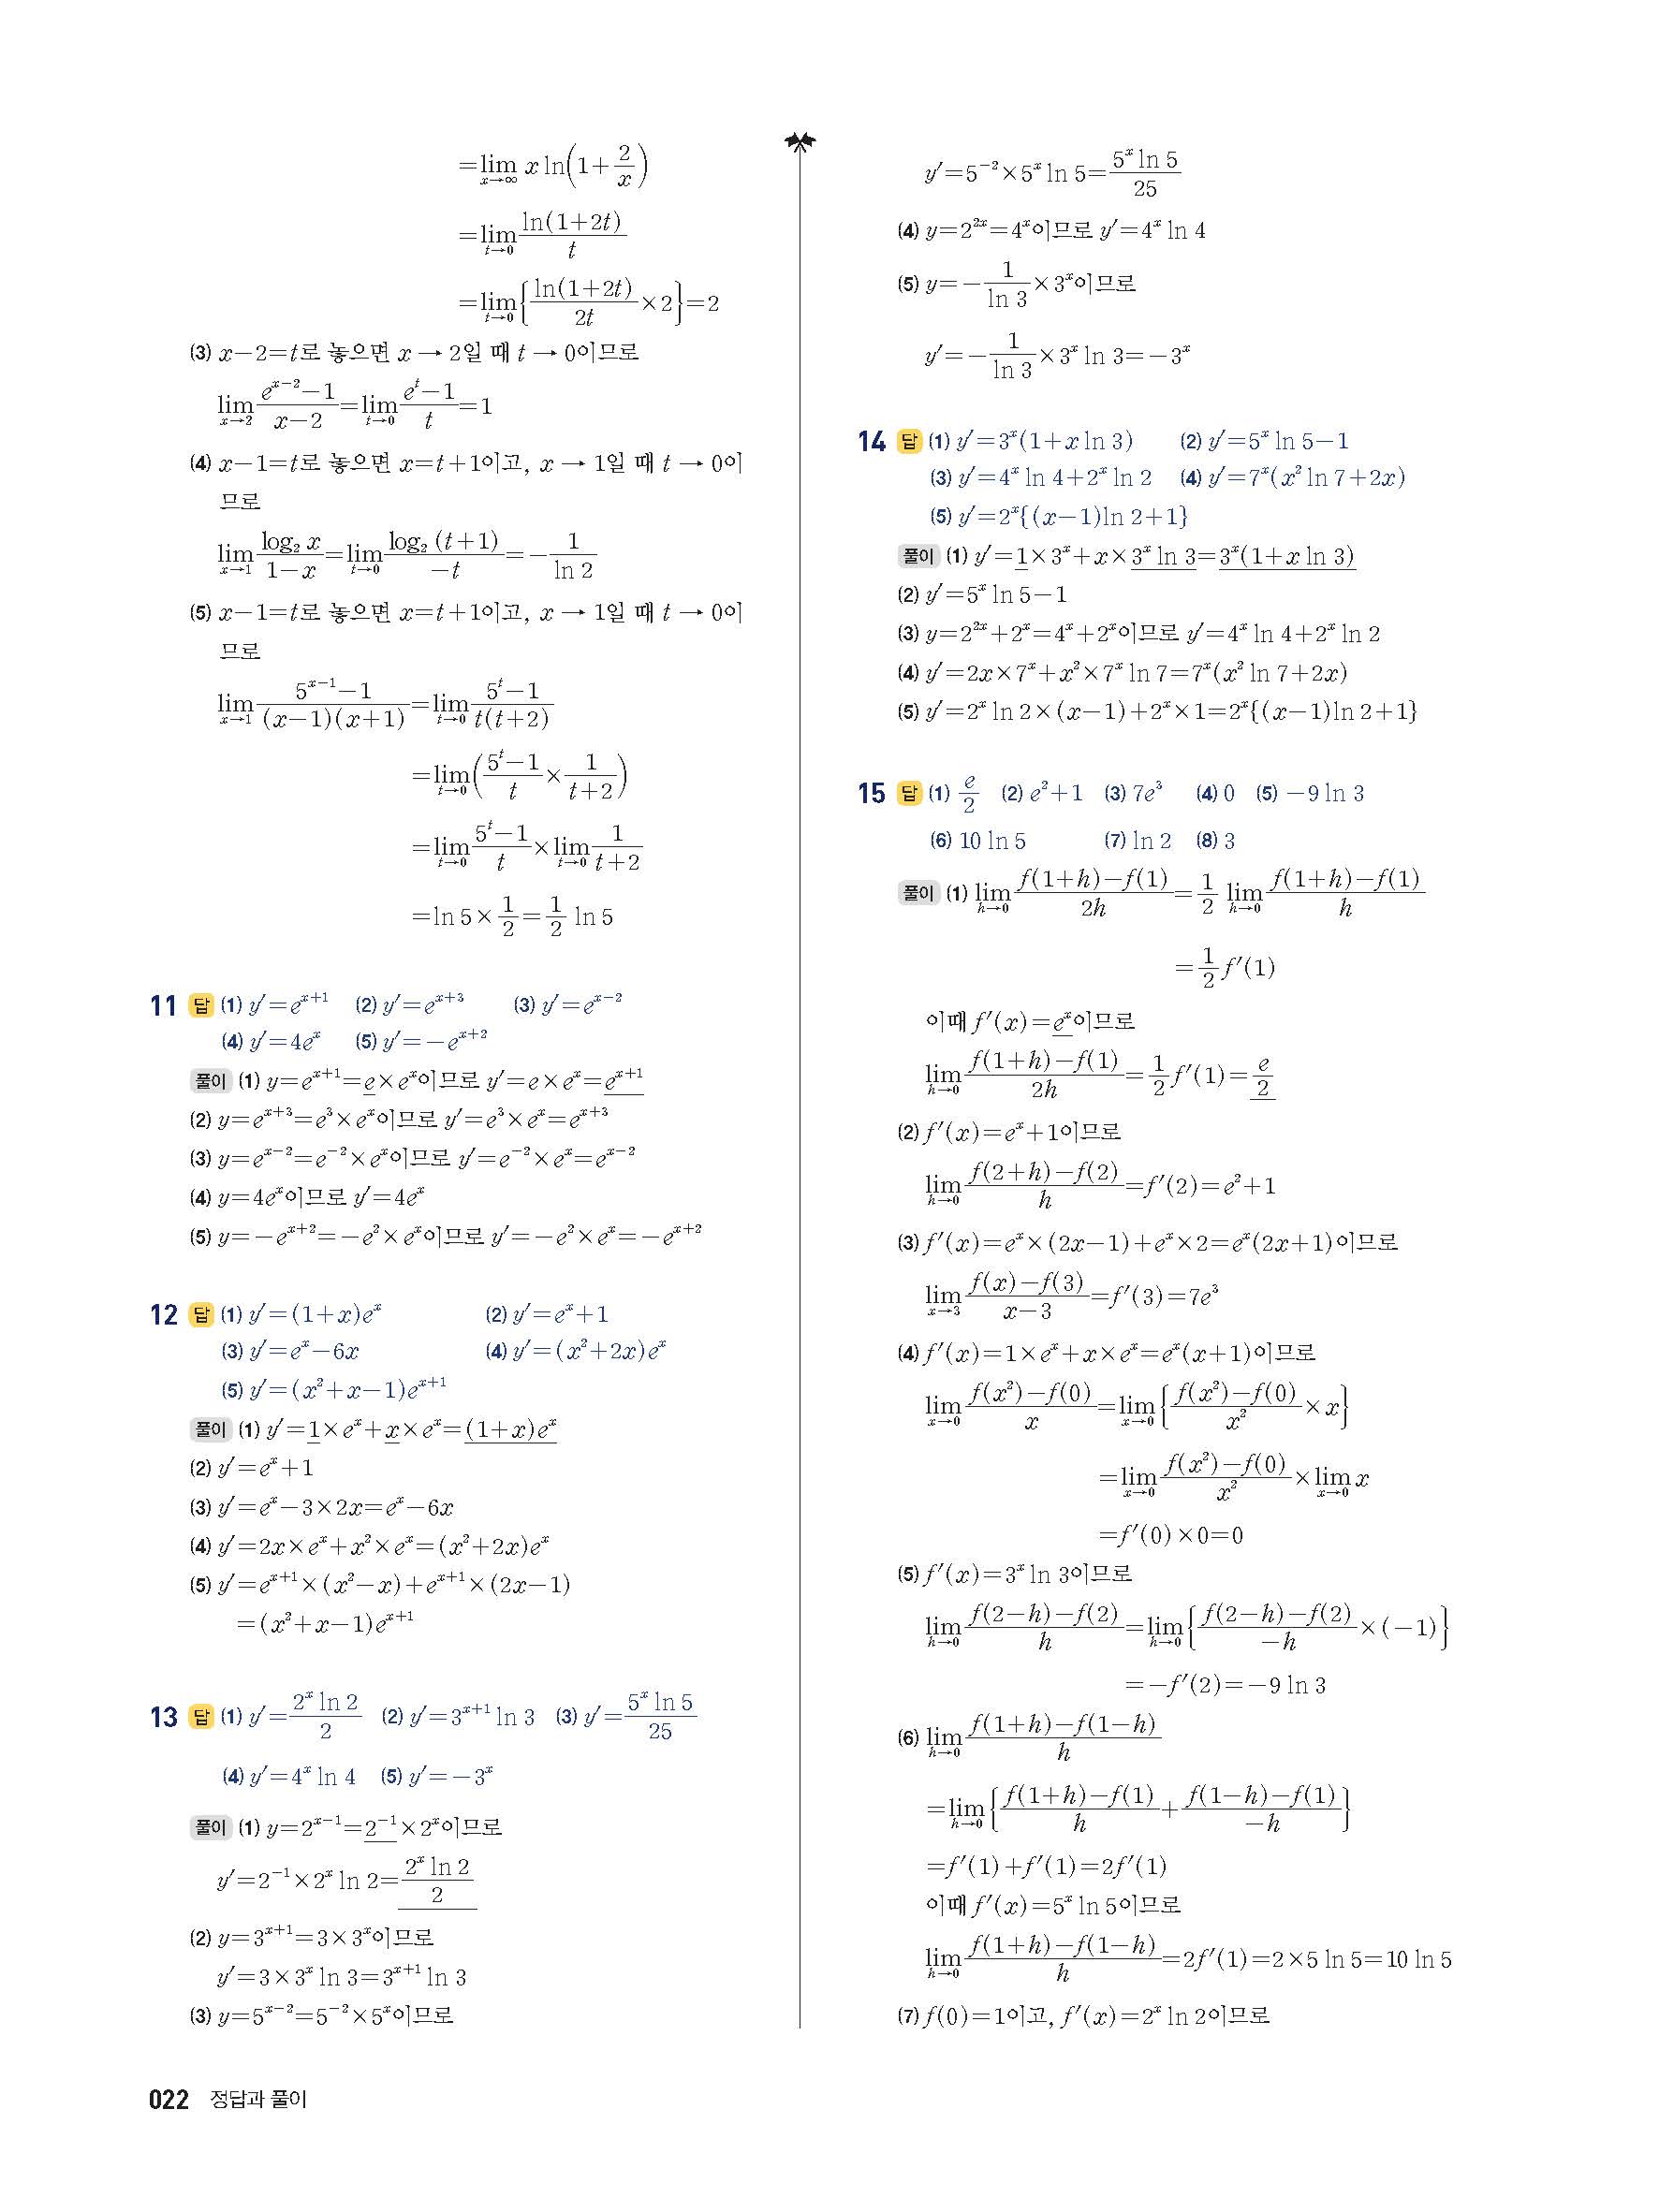 =lim_{x→∞} x ln(1+2/x)
=lim_{t→0} ln(1+2t)/t
=lim_{t→0}{ln(1+2t)/2t ×2}=2
(3) x-2=t로 놓으면 x → 2일 때 t → 0이므로
lim_{x→2} (e^{x-2}-1)/(x-2)=lim_{t→0} (e^t-1)/t=1
(4) x-1=t로 놓으면 x=t+1이고, x → 1일 때 t → 0이
므로
lim_{x→1} log₂ x/(1-x)=lim_{t→0} log₂ (t+1)/(-t)=-1/ln 2
(5) x-1=t로 놓으면 x=t+1이고, x → 1일 때 t → 0이
므로
lim_{x→1} (5^{x-1}-1)/((x-1)(x+1))=lim_{t→0} (5^t-1)/(t(t+2))
=lim_{t→0}((5^t-1)/t × 1/(t+2))
=lim_{t→0} (5^t-1)/t × lim_{t→0} 1/(t+2)
=ln 5×1/2=1/2 ln 5
11 답 (1) y′=e^{x+1} (2) y′=e^{x+3} (3) y′=e^{x-2}
(4) y′=4e^x (5) y′=-e^{x+2}
풀이 (1) y=e^{x+1}=e×e^x이므로 y′=e×e^x=e^{x+1}
(2) y=e^{x+3}=e³×e^x이므로 y′=e³×e^x=e^{x+3}
(3) y=e^{x-2}=e^{-2}×e^x이므로 y′=e^{-2}×e^x=e^{x-2}
(4) y=4e^x이므로 y′=4e^x
(5) y=-e^{x+2}=-e²×e^x이므로 y′=-e²×e^x=-e^{x+2}
12 답 (1) y′=(1+x)e^x (2) y′=e^x+1
(3) y′=e^x-6x (4) y′=(x²+2x)e^x
(5) y′=(x²+x-1)e^{x+1}
풀이 (1) y′=1×e^x+x×e^x=(1+x)e^x
(2) y′=e^x+1
(3) y′=e^x-3×2x=e^x-6x
(4) y′=2x×e^x+x²×e^x=(x²+2x)e^x
(5) y′=e^{x+1}×(x²-x)+e^{x+1}×(2x-1)
=(x²+x-1)e^{x+1}
13 답 (1) y′=2^x ln 2/2 (2) y′=3^{x+1} ln 3 (3) y′=5^x ln 5/25
(4) y′=4^x ln 4 (5) y′=-3^x
풀이 (1) y=2^{x-1}=2^{-1}×2^x이므로
y′=2^{-1}×2^x ln 2=2^x ln 2/2
(2) y=3^{x+1}=3×3^x이므로
y′=3×3^x ln 3=3^{x+1} ln 3
(3) y=5^{x-2}=5^{-2}×5^x이므로
y′=5^{-2}×5^x ln 5=5^x ln 5/25
(4) y=2^{2x}=4^x이므로 y′=4^x ln 4
(5) y=-1/ln 3×3^x이므로
y′=-1/ln 3×3^x ln 3=-3^x
14 답 (1) y′=3^x(1+x ln 3) (2) y′=5^x ln 5-1
(3) y′=4^x ln 4+2^x ln 2 (4) y′=7^x(x² ln 7+2x)
(5) y′=2^x{(x-1)ln 2+1}
풀이 (1) y′=1×3^x+x×3^x ln 3=3^x(1+x ln 3)
(2) y′=5^x ln 5-1
(3) y=2^{2x}+2^x=4^x+2^x이므로 y′=4^x ln 4+2^x ln 2
(4) y′=2x×7^x+x²×7^x ln 7=7^x(x² ln 7+2x)
(5) y′=2^x ln 2×(x-1)+2^x×1=2^x{(x-1)ln 2+1}
15 답 (1) e/2 (2) e²+1 (3) 7e³ (4) 0 (5) -9 ln 3
(6) 10 ln 5 (7) ln 2 (8) 3
풀이 (1) lim_{h→0} (f(1+h)-f(1))/2h=1/2 lim_{h→0} (f(1+h)-f(1))/h
=1/2 f′(1)
이때 f′(x)=e^x이므로
lim_{h→0} (f(1+h)-f(1))/2h=1/2 f′(1)=e/2
(2) f′(x)=e^x+1이므로
lim_{h→0} (f(2+h)-f(2))/h=f′(2)=e²+1
(3) f′(x)=e^x×(2x-1)+e^x×2=e^x(2x+1)이므로
lim_{x→3} (f(x)-f(3))/(x-3)=f′(3)=7e³
(4) f′(x)=1×e^x+x×e^x=e^x(x+1)이므로
lim_{x→0} (f(x²)-f(0))/x=lim_{x→0}{(f(x²)-f(0))/x² ×x}
=lim_{x→0} (f(x²)-f(0))/x² ×lim_{x→0} x
=f′(0)×0=0
(5) f′(x)=3^x ln 3이므로
lim_{h→0} (f(2-h)-f(2))/h=lim_{h→0}{(f(2-h)-f(2))/(-h) ×(-1)}
=-f′(2)=-9 ln 3
(6) lim_{h→0} (f(1+h)-f(1-h))/h
=lim_{h→0}{(f(1+h)-f(1))/h+(f(1-h)-f(1))/(-h)}
=f′(1)+f′(1)=2f′(1)
이때 f′(x)=5^x ln 5이므로
lim_{h→0} (f(1+h)-f(1-h))/h=2f′(1)=2×5 ln 5=10 ln 5
(7) f(0)=1이고, f′(x)=2^x ln 2이므로
022 정답과 풀이